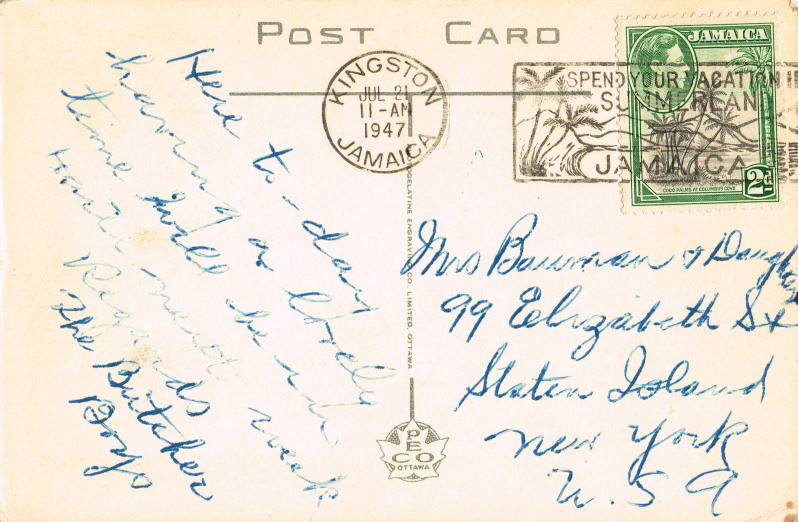 POST CARD
KINGSTON
JUL 21
11-AM
1947
JAMAICA
SPEND YOUR VACATION IN
SUMMERLAND
JAMAICA
JAMAICA
COCO PALMS AT COLUMBUS COVE
2d
Here to-day
having a lovely
time will be in
week
Regards
The Butcher
Boys
GELATINE ENGRAVING CO. LIMITED, OTTAWA
PECO
OTTAWA
Mrs Bauman & Daughter
99 Elizabeth St
Staten Island
New York
U.S.A